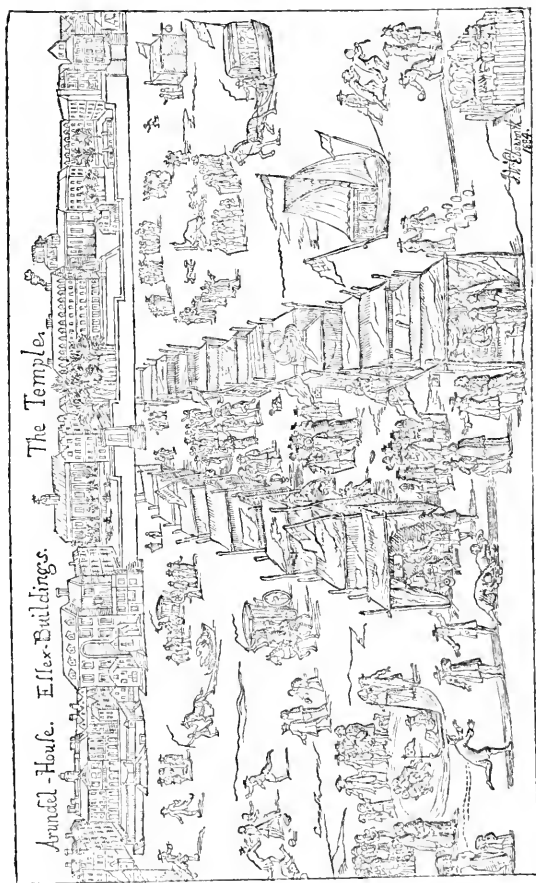 Arundel-Houſe. Eſſex-Buildings. The Temple.
1684.